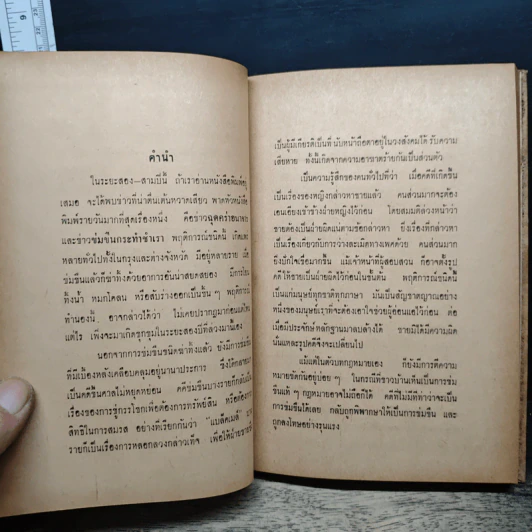 คำนำ
ในระยะสอง–สามปีนี้ ถ้าเราอ่านหนังสือพิมพ์อยู่
เสมอ จะได้พบข่าวที่น่าตื่นเต้นหวาดเสียว พาดหัวหนังสือ
พิมพ์รายวันมากที่สุดเรื่องหนึ่ง คือข่าวฉุดคร่าอนาจาร
และข่าวข่มขืนกระทำชำเรา พฤติการณ์ชนิดนี้ เกิดและ
หลายทั่วไปทั้งในกรุงและต่างจังหวัด มีอยู่หลายราย
ข่มขืนแล้วก็ฆ่าทิ้งด้วยอาการอันน่าสยดสยอง มีการโยน
ทิ้งน้ำ หมกโคลน หรือสับร่างออกเป็นชิ้น ๆ พฤติการณ์
ทำนองนี้ อาจกล่าวได้ว่า ไม่เคยปรากฏมาก่อน
แต่ไร เพิ่งจะมาเกิดชุกชุมในระยะสองปีที่ล่วงมานี้เอง
นอกจากการข่มขืนชนิดฆ่าทิ้งแล้ว ยังมีการข่มขืน
ที่มีเบื้องหลังเคลือบคลุมอยู่นานาประการ ซึ่งได้กลาย
เป็นคดีขึ้นศาลไม่หยุดหย่อน คดีข่มขืนบางรายก็กลับเป็น
เรื่องของการขู่กรรโชกเพื่อต้องการทรัพย์สิน หรือต้องการ
สิทธิในการสมรส อย่างที่เรียกกันว่า "แบล็คเมล์"
รายก็เป็นเรื่องการหลอกลวงกล่าวเท็จ เพื่อให้ฝ่ายชาย
เป็นผู้มีเกียรติเป็นที่นับหน้าถือตาอยู่ในวงสังคมได้รับความ
เสียหาย ทั้งนี้เกิดจากความอาฆาตร้ายกันเป็นส่วนตัว
เป็นความรู้สึกของคนทั่วไปที่ว่า เมื่อคดีที่เกิดขึ้น
เป็นเรื่องของหญิงกล่าวหาชายแล้ว คนส่วนมากจะต้อง
เอนเอียงเข้าข้างฝ่ายหญิงไว้ก่อน โดยสมมติล่วงหน้าว่า
ชายต้องเป็นฝ่ายผิดแน่ตามข้อกล่าวหา ยิ่งเรื่องที่กล่าวหา
เป็นเรื่องเกี่ยวกับการล่วงละเมิดทางเพศด้วย คนส่วนมาก
ยิ่งปักใจเชื่อมากขึ้น แม้เจ้าหน้าที่ผู้สอบสวน ก็อาจตั้งรูป
คดีให้ชายเป็นฝ่ายผิดไว้ก่อนในขั้นต้น พฤติการณ์ชนิดนี้
เป็นแก่มนุษย์ทุกชาติทุกภาษา มันเป็นสัญชาตญาณอย่าง
หนึ่งของมนุษย์เราที่จะต้องเอาใจช่วยผู้อ่อนแอไว้ก่อน ต่อ
เมื่อมีประจักษ์หลักฐานมาลบล้างได้ ชายมิได้มีความผิด
นั่นแหละรูปคดีจึงจะเปลี่ยนไป
แม้แต่ในตัวบทกฎหมายเอง ก็ยังมีการตีความ
หมายขัดกันอยู่บ่อย ๆ ในกรณีที่ชาวบ้านเห็นเป็นการข่ม
ขืนแท้ ๆ กฎหมายอาจไม่ถือก็ได้ คดีที่ไม่มีที่ท่าว่าจะเป็น
การข่มขืนได้เลย กลับถูกพิพากษาให้เป็นการข่มขืน และ
ถูกลงโทษอย่างรุนแรง